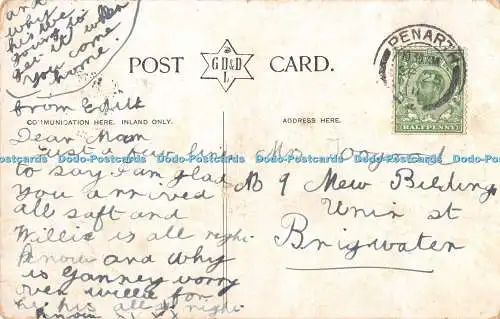 and
white
his we
going to
get it when
you come
home.
POST
GD&D
L
CARD.
PENARTH
HALFPENNY
from Edith
COMMUNICATION HERE. INLAND ONLY.
ADDRESS HERE.
Dear Mam
Just a few lines
to say i am glad
you arrived
all saft and
Willie is all right
know and why
is Ganney worry
over willie for
he his all right
know x x x
Mrs
No 9 New Bilding
Unin st
Brigwater
Dodo-Postcards Dodo-Postcards Dodo-Postcards Dodo-Postcards Dodo-Postcards